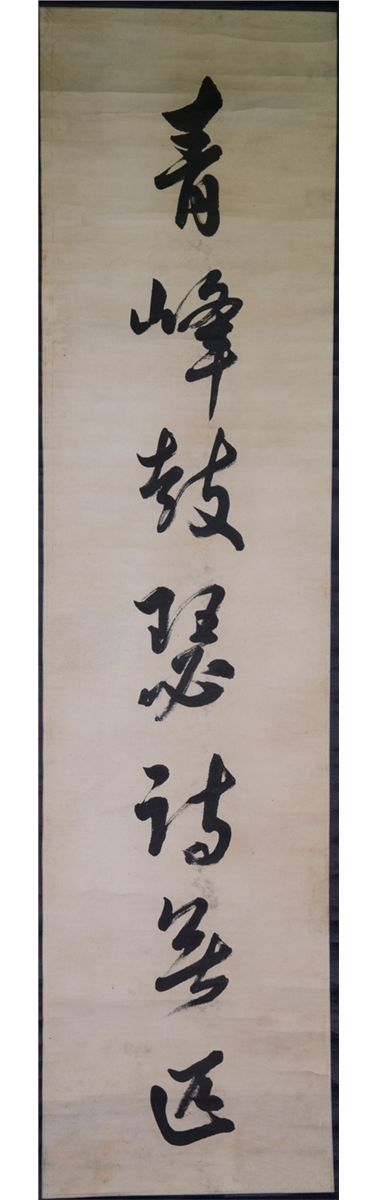 青峰鼓瑟詩無匹